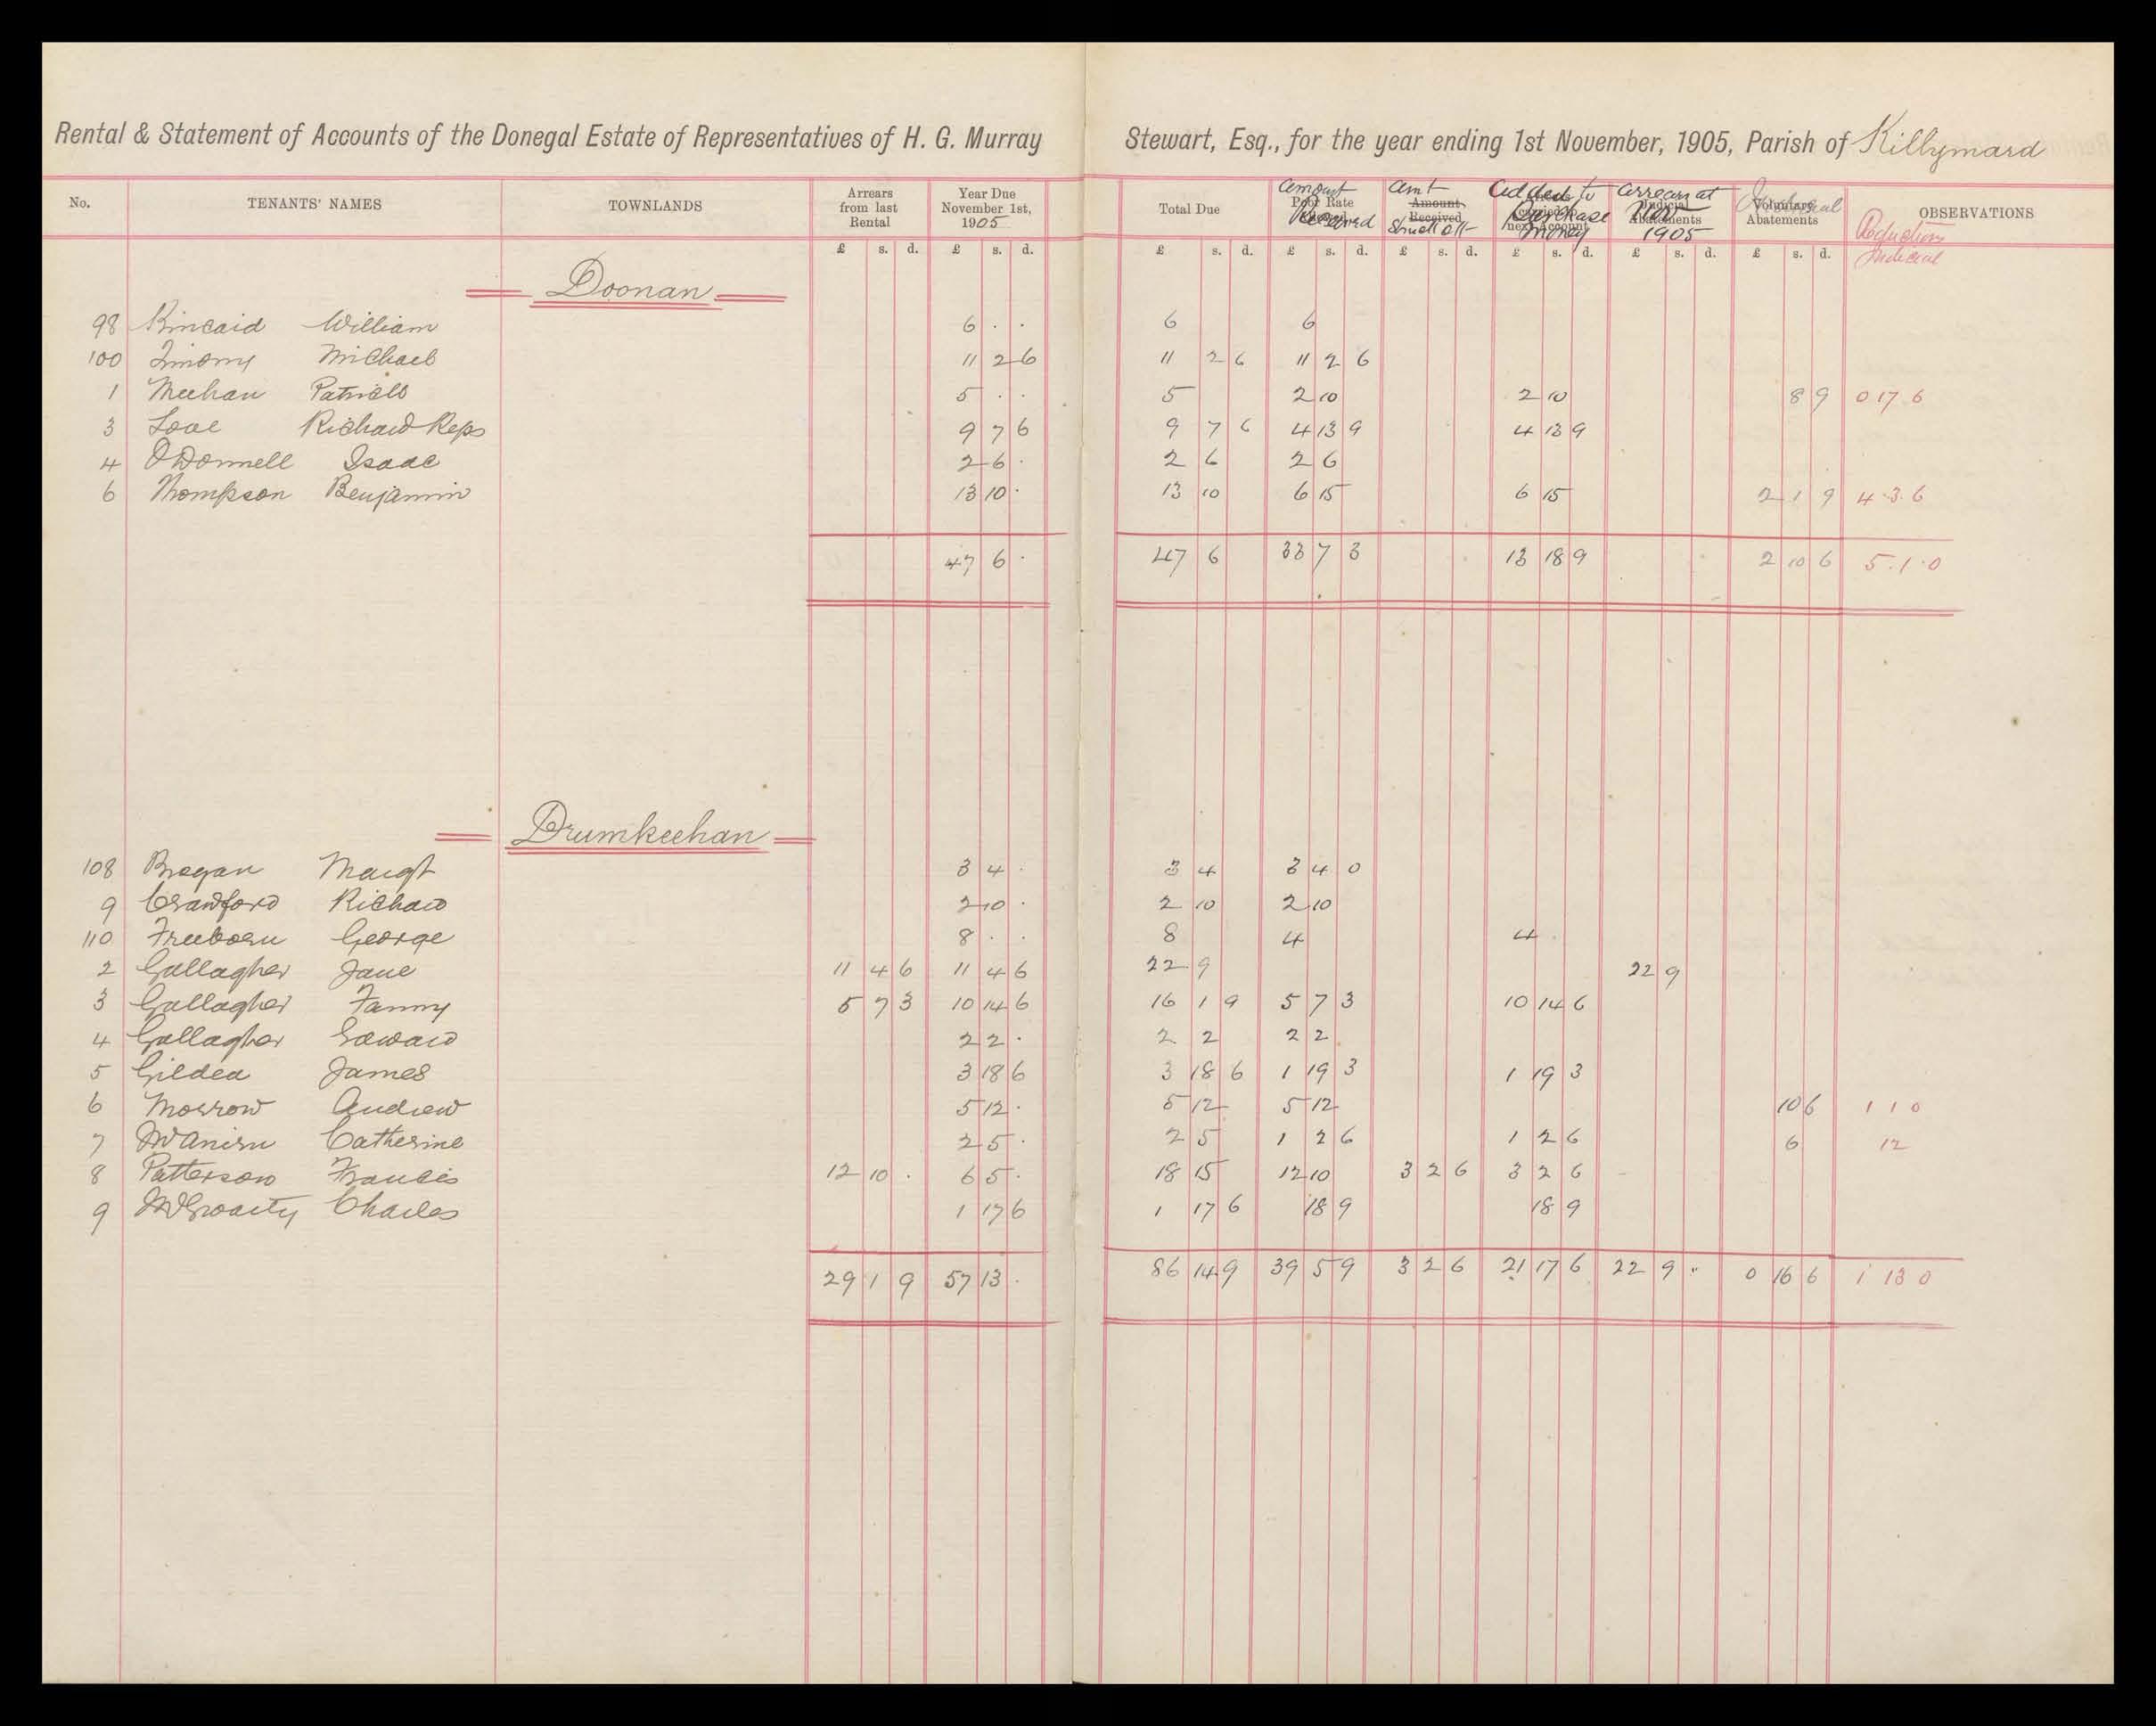 Rental & Statement of Accounts of the Donegal Estate of Representatives of H. G. Murray Stewart, Esq., for the year ending 1st November, 1905, Parish of Killymard
No. TENANTS' NAMES TOWNLANDS Arrears from last Rental Year Due November 1st, 1905 Total Due Amount Received Amt Struck off Added to Purchase Money Arrears at Nov 1905 Voluntary Abatements OBSERVATIONS Reductions Judicial
£ s. d. £ s. d. £ s. d. £ s. d. £ s. d. £ s. d. £ s. d. £ s. d.
Doonan
98 Kincaid William 6 . . 6 6
100 Timony Michael 11 2 6 11 2 6 11 2 6
1 Meehan Patrick 5 . . 5 2 10 2 10 8 9 0 17 6
3 Love Richard Reps 9 7 6 9 7 6 4 13 9 4 13 9
4 O'Donnell Isaac 2 6 . 2 6 2 6
6 Thompson Benjamin 13 10 . 13 10 6 15 6 15 2 1 9 4 3 6
47 6 . 47 6 33 7 3 13 18 9 2 10 6 5 . 1 . 0
Drumkeehan
108 Brogan Margt 3 4 . 3 4 3 4 0
9 Crawford Richard 2 10 . 2 10 2 10
110 Freeborn George 8 . . 8 4 4 .
2 Gallagher Jane 11 4 6 11 4 6 22 9 22 9
3 Gallagher Fanny 5 7 3 10 14 6 16 1 9 5 7 3 10 14 6
4 Gallagher Edward 2 2 . 2 2 2 2
5 Gildea James 3 18 6 3 18 6 1 19 3 1 19 3
6 Morrow Andrew 5 12 . 5 12 5 12 10 6 1 1 0
7 Catherine 2 5 . 2 5 1 2 6 1 2 6 6 12
8 Patterson Francis 12 10 . 6 5 . 18 15 12 10 3 2 6 3 2 6
9 McGroarty Charles 1 17 6 1 17 6 18 9 18 9
29 1 9 57 13 . 86 14 9 39 5 9 3 2 6 21 17 6 22 9 " 0 16 6 1 13 0